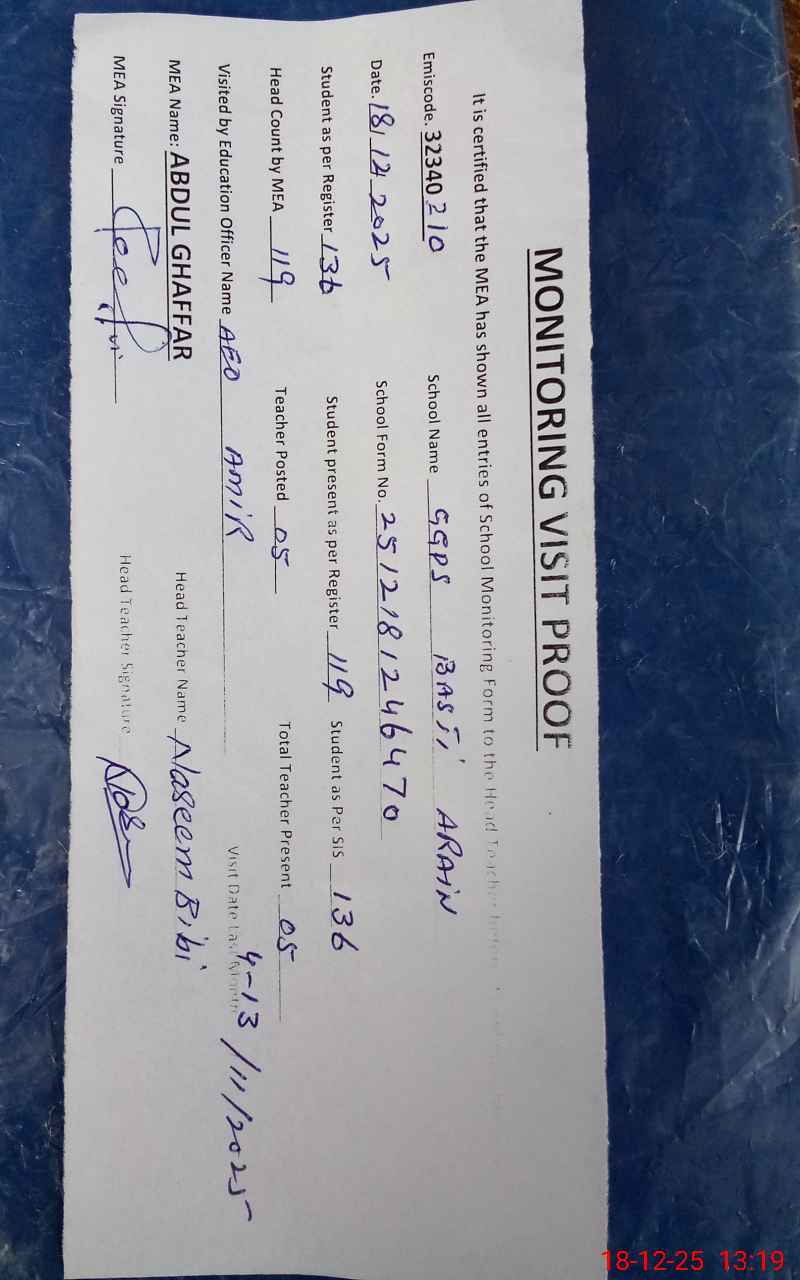 MONITORING VISIT PROOF
It is certified that the MEA has shown all entries of School Monitoring Form to the Head Teacher before
Emiscode. 32340210 School Name GGPS BASTI ARAIN
Date. 18, 12 2025 School Form No. 251218124 6470
Student as per Register 136 Student present as per Register 119 Student as Per SIS 136
Head Count by MEA 119 Teacher Posted 05 Total Teacher Present 05
Visited by Education Officer Name AEO AMIR Visit Date Last Month 4-13/11/2025
MEA Name: ABDUL GHAFFAR Head Teacher Name Naseem Bibi
MEA Signature Head Teacher Signature
18-12-25 13:19